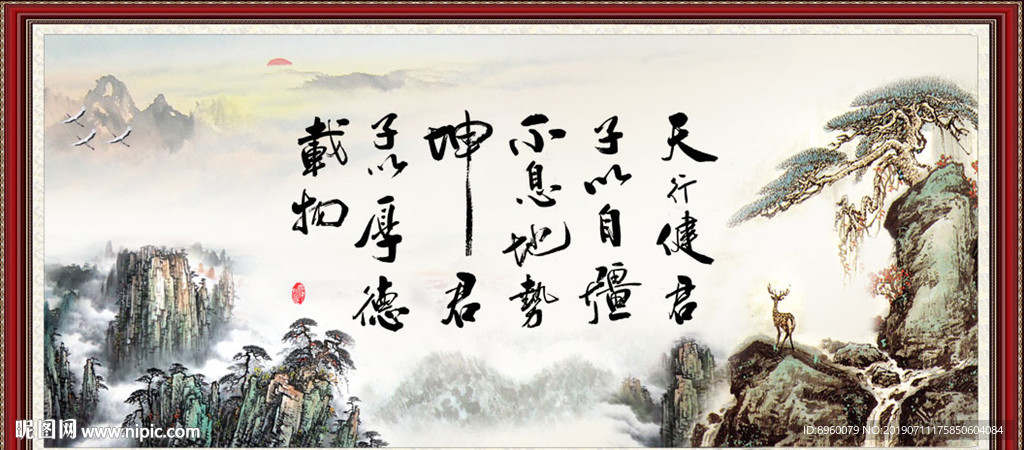 天行健君
子以自彊
不息地勢
坤君
子以厚德
載物
昵图网 www.nipic.com
ID:8960079 NO:20190711175850604084